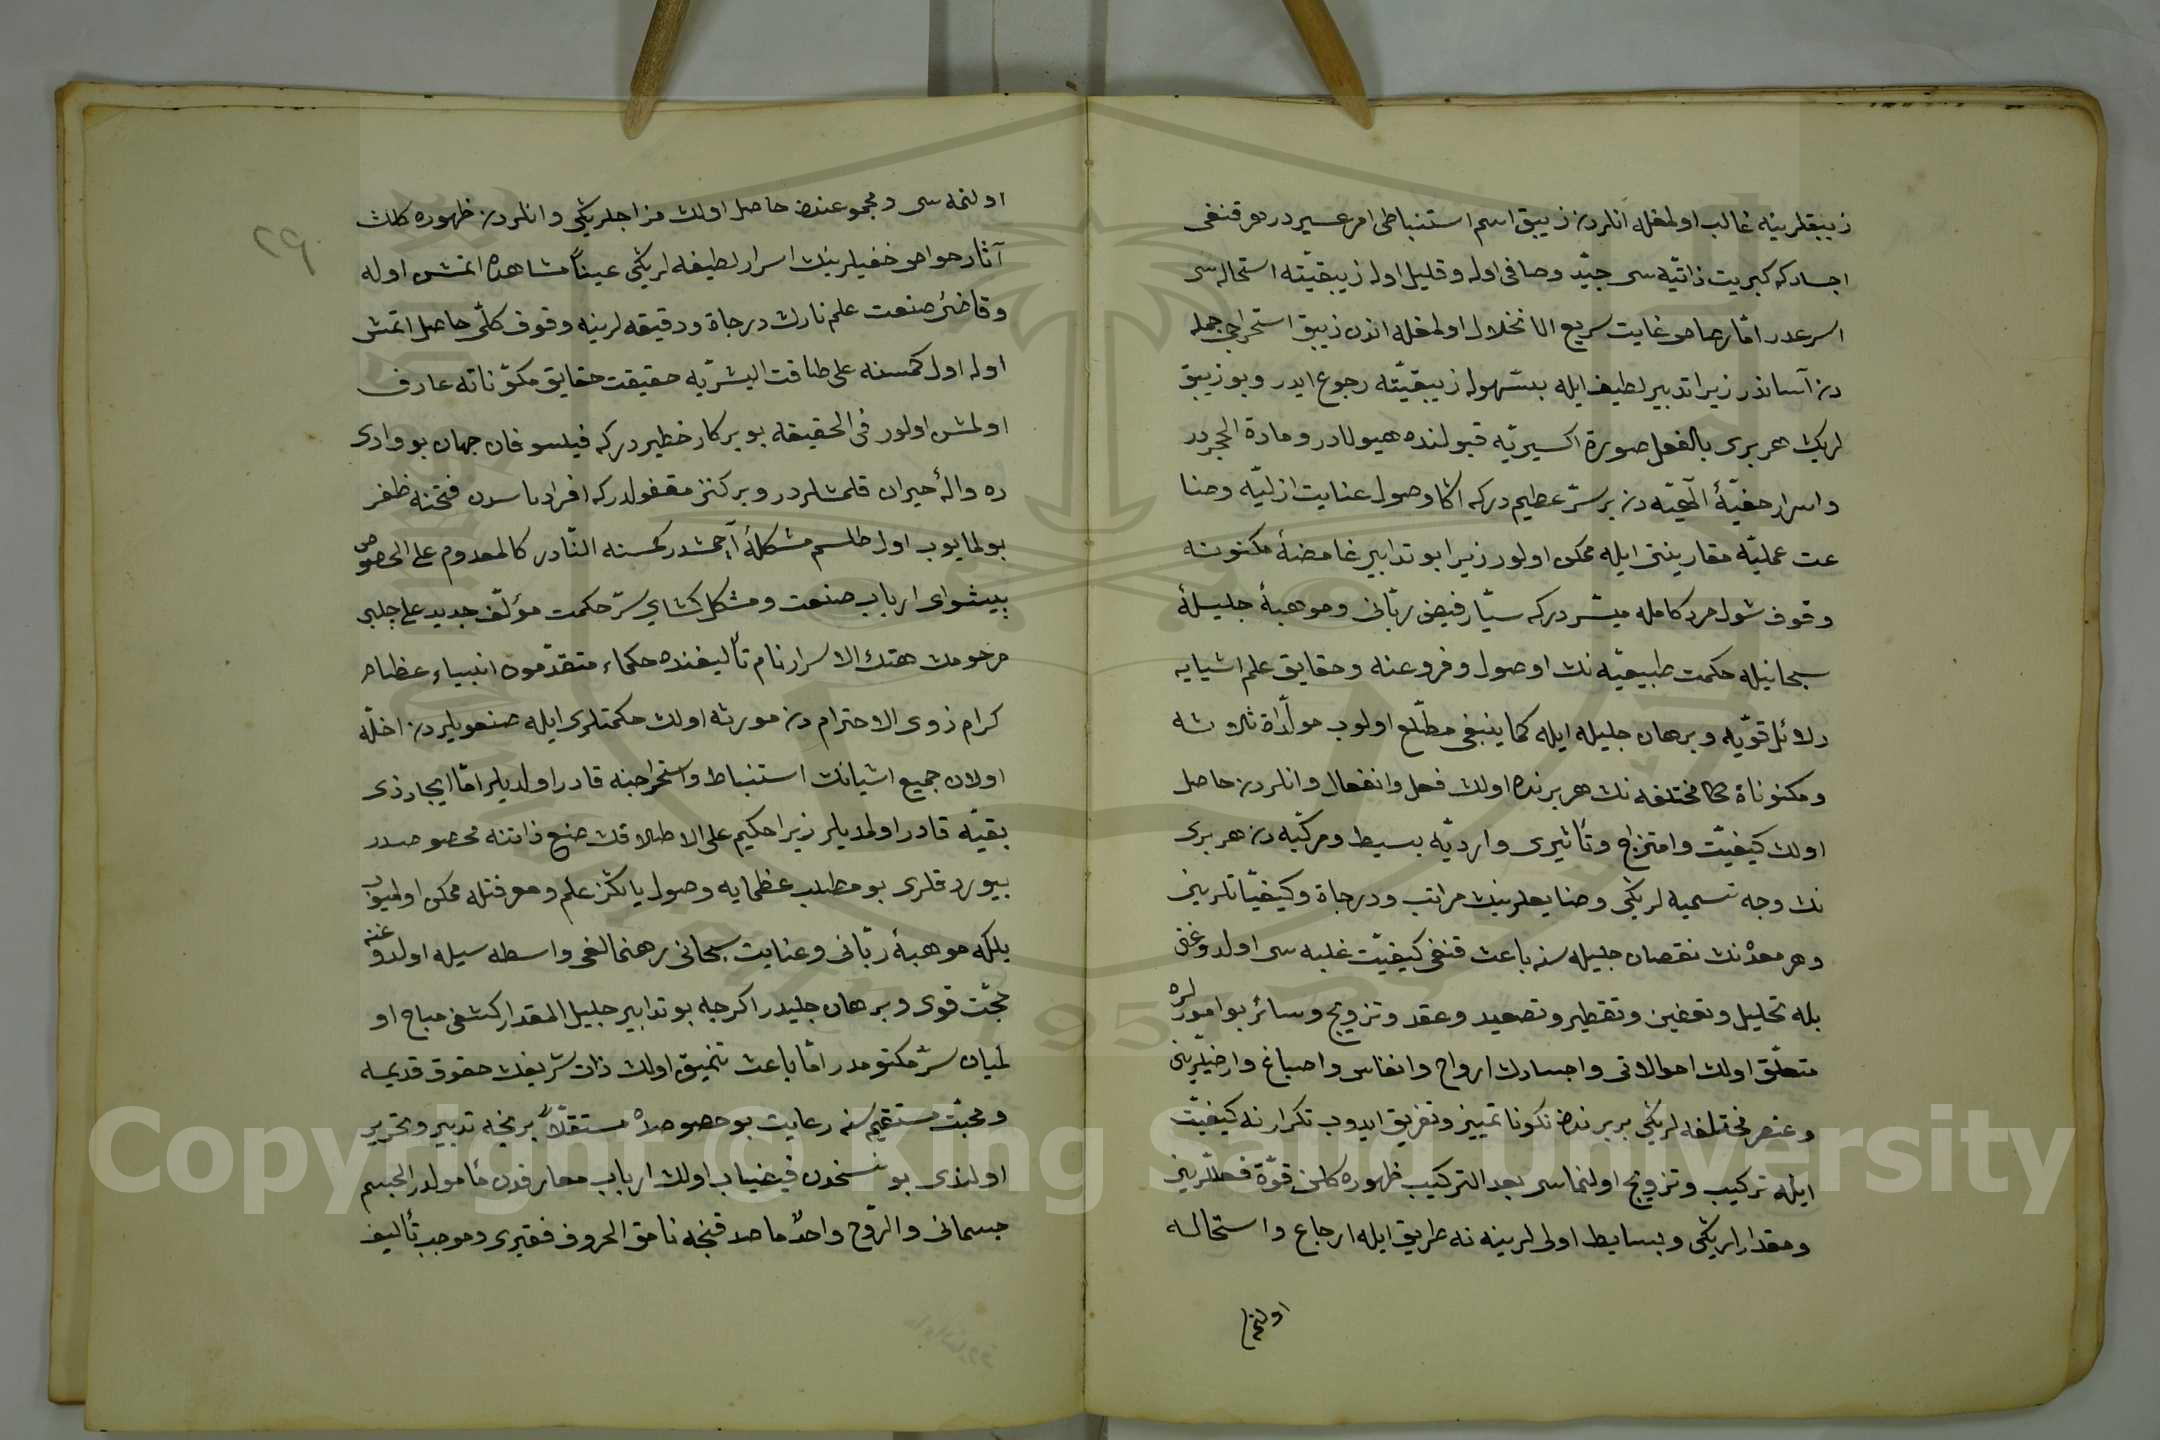 زيبقلرينه غالب اولمغله انلردن زيبق اسم استنباطى امر عسير در هر قنغى
اجساد كه كبريت ذاتيه سى جيّد وصافى اوله وقليل اوله زيبقيّته استحاله سى
اسرعدر امّا رصاص غايت سريع الانخلال اولمغله اندن زيبق استخراجى جمله
دن آساندر زيرا تدبير لطيف ايله بسّهوله زيبقيّته رجوع ايدر وبو زيبق
لريك هر برى بالفعل صورة اكسيريّه قبولنده هيولادر ومادة الحجردر
واسرار خفيّۀ الٓهيّه دن بر سرّ عظيم دركه اكا وصول عنايت ازليّه وصنا
عت عمليّه مقارينتى ايله ممكن اولور زيرا بو تدابير غامضۀ مكنونه
وقوف شول مرد كامله ميسّر دركه سيّار فيض ربّانى وموهبۀ جليلۀ
سبحانيله حكمت طبيعيّه نك اوصول وفروعنه وحقايق علم اشيايه
دلائل قويّه وبرهان جليله ايله كما ينبغى مطّلع اولوب مولّداة ثلاثه
ومكنوناة مختلفه نك هر برنده اولان فعل وانفعال وانلردن حاصل
اولان كيفيّت وامتزاج وتأثيرى واردیّه بسيط ومركبّه دن هر برى
نك وجه تسميه لريكى وصنايعلرينك مراتب ودرجاة وكيفيّاتلرينى
وهر معدنك نقصان جليله سنه باعث قنغى كيفيّت غلبه سى اولدوغنى
بله تحليل وتعفين وتقطير وتصعيد وعقد وتزويج وسائر بو امورلره
متعلّق اولان احوالاتى واجسادك ارواح وانفاس واصباغ وارضيّلرينى
وعنصر مختلفه لريكى بربرنده تكونا تمييز وتفريق ايدوب تكرار نه كيفيّت
ايله تركيب وتزويج اولنماسى بعد التركيب ظهوره كلن قوّة فعللرينى
ومقدارلريكى وبسايط اولى لرينه نه طريق ايله ارجاع واستحاله
اولنما
٢٩
اولنمه سى ومجموعنده حاصل اولان مزاجلريكى وانلردن ظهوره كلان
آثار خواص خفيلرينك اسرار لطيفه لريكى عيناً مشاهده اتمش اوله
وقاضئ صنعت علم نارك درجاة ودقيقه لرينه وقوف كلّى حاصل اتمش
اوله اول كمسنه على طاقت البشريّه حقيقت حقايق مكوّناته عارف
اولمش اولور فى الحقيقه بو بر كار خطير دركه فيلسوفان جهان بو وادى
ده والۀ حيران قلمشلردر وبر كنز مقفولدركه افراد ناسدن فتحنه ظفر
بولمايوب اول طلسم مشكلۀ آچمشدر كمسنه النّادر كالمعدوم على الخصوص
پيشواى ارباب صنعت ومشكل كشاى سرّ حكمت مؤلّف جديد على چلبى
مرحومك هتك الاسرار نام تأليفنده حكماء متقدّمون انبياء عظام
كرام ذوى الاحترام دن مورثه اولان حكمتلرى ايله صنعويلردن اخلّه
اولان جميع اشيانك استنباط واستخراجنه قادر اولديلر امّا ايجاد ذى
بقيّه قادر اولمديلر زيرا حكيم على الاطلاقك صنع ذاتنه مخصوصدر
بيوردقلرى بو مطلب عظمايه وصول يالكز علم ومعرفتله ممكن اولميوب
بلكه موهبۀ ربّانى وعنايت سبحانى رهنمالغى واسطه سيله اولدوغنه
حجّت قوى وبرهان جليدر اكرچه بو تدابير جليل المقدار كشفى مباح او
لميان سرّ مكتومدر امّا باعث تنميق اولان ذات شريفك حقوق قديمه
ومحبّت مستقيم سنه رعايت بو خصوصده مستقلّاً بر نيجه تدبير وتحرير
اولندى بو نسخه‌دن فيضياب اولان ارباب معارفدن مأمولدر الجسم
جسمانى والرّوح واحدٌ ما صدقنجه نامق الحروف فقيرى وموجب تأليف